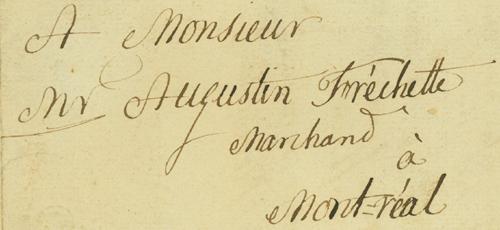 A Monsieur
Mr Augustin Fréchette
Marchand
à
Mont=réal